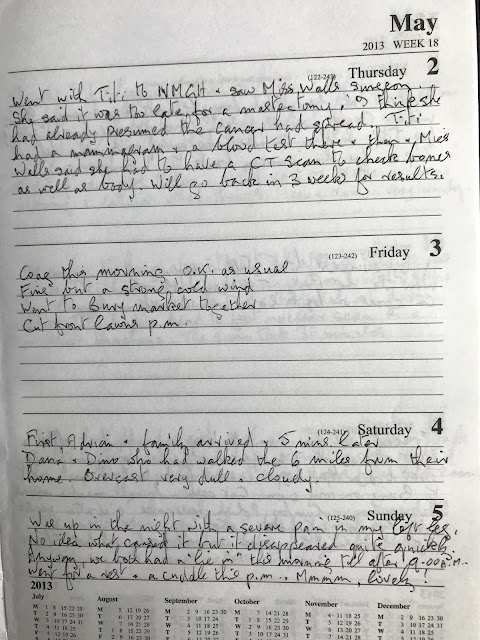 May
2013 WEEK 18
(122-243) Thursday 2
Went with Titi to NMGH & saw Miss Walls surgeon.
She said it was too late for a mastectomy, & I think she
had already presumed the cancer had spread. Titi
had a mammogram & a blood test there & then & Miss
Walls said she had to have a CT scan to check bones
as well as body. Will go back in 3 weeks for results.
(123-242) Friday 3
Coag this morning O.K. as usual
Fine but a strong cold wind
Went to Bury market together
Cut front lawns p.m.
(124-241) Saturday 4
First, Adrian & family arrived & 5 mins later
Dana & Dino who had walked the 6 miles from their
home. Overcast, very dull & cloudy.
(125-240) Sunday 5
Was up in the night with a severe pain in my left leg.
No idea what caused it but it disappeared quite quickly
Anyway, we both had a "lie in" this morning till after 9.00a.m.
Went for a rest & a cuddle this p.m.. Mmmm, lovely!
2013
July August September October November December
M 1 8 15 22 29 M 5 12 19 26 M 2 9 16 23 30 M 7 14 21 28 M 4 11 18 25 M 2 9 16 23 30
T 2 9 16 23 30 T 6 13 20 27 T 3 10 17 24 T 1 8 15 22 29 T 5 12 19 26 T 3 10 17 24 31